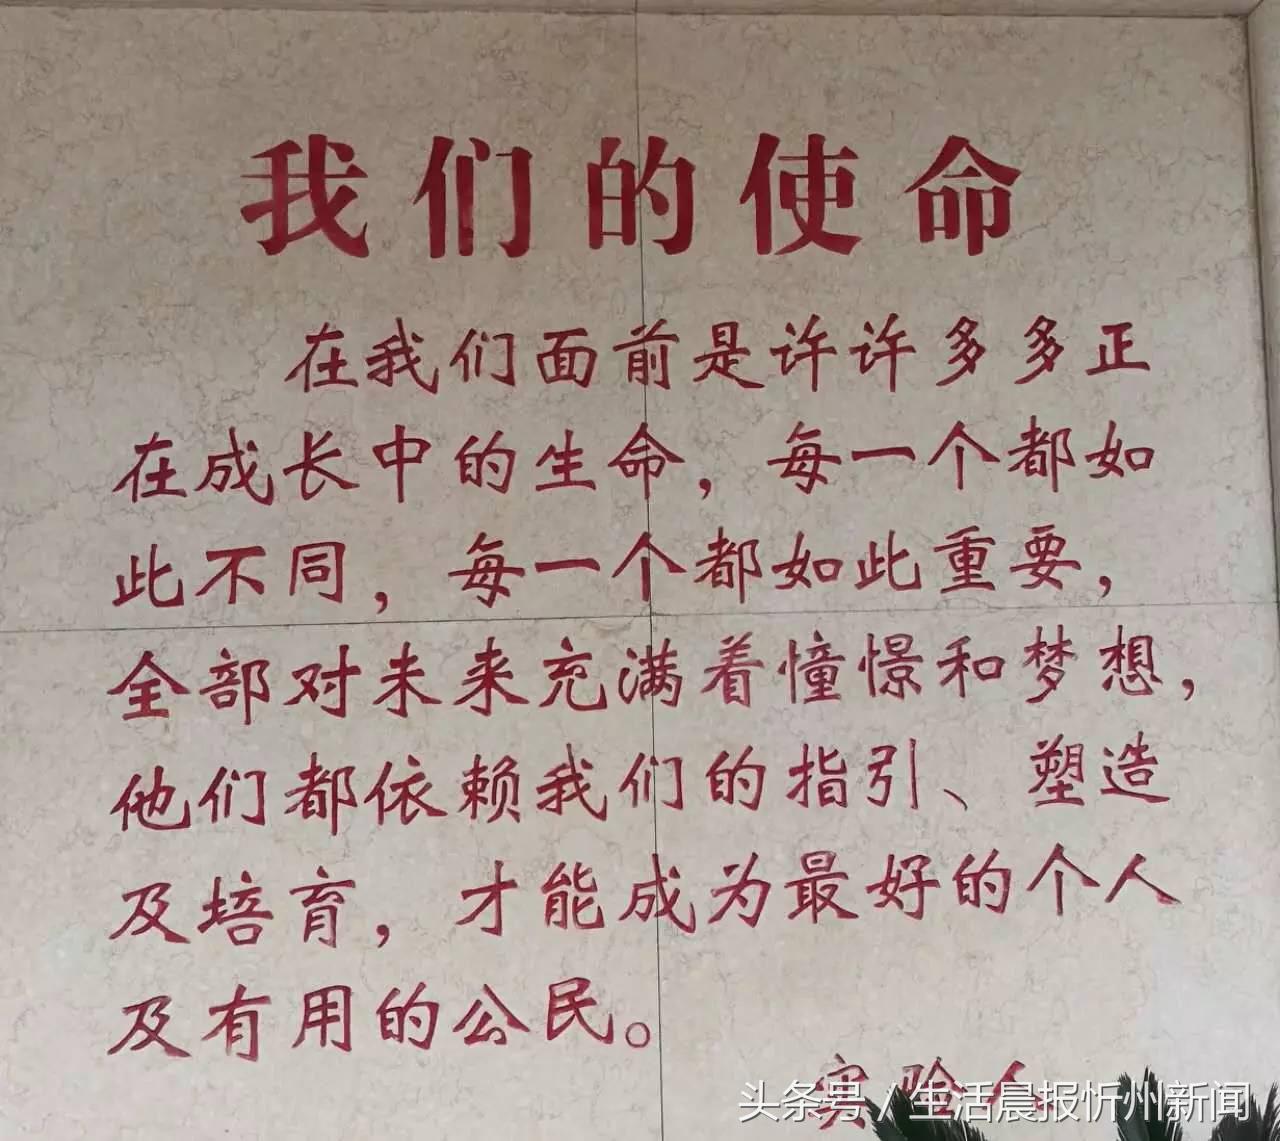 我们的使命
在我们面前是许许多多正
在成长中的生命，每一个都如
此不同，每一个都如此重要，
全部对未来充满着憧憬和梦想，
他们都依赖我们的指引、塑造
及培育，才能成为最好的个人
及有用的公民。
实验人
头条号／生活晨报忻州新闻